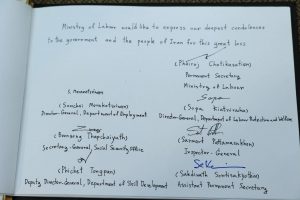 Ministry of Labour would like to express our deepest condolences
to the government and the people of Iran for this great loss
(Phairoj Chotikasatien)
Permanent Secretary
Ministry of Labour
(Somchai Morakotsriwan)
Director-General, Department of Employment
(Sopa Kiatniracha)
Director-General, Department of Labour Protection and Welfare
(Boonsong Thapchaiyuth)
Secretary-General, Social Security Office
(Sarmart Pattamasukhon)
Inspector-General
(Phichet Tongpan)
Deputy Director-General, Department of Skill Development
(Sakdinath Sontisakyothin)
Assistant Permanent Secretary